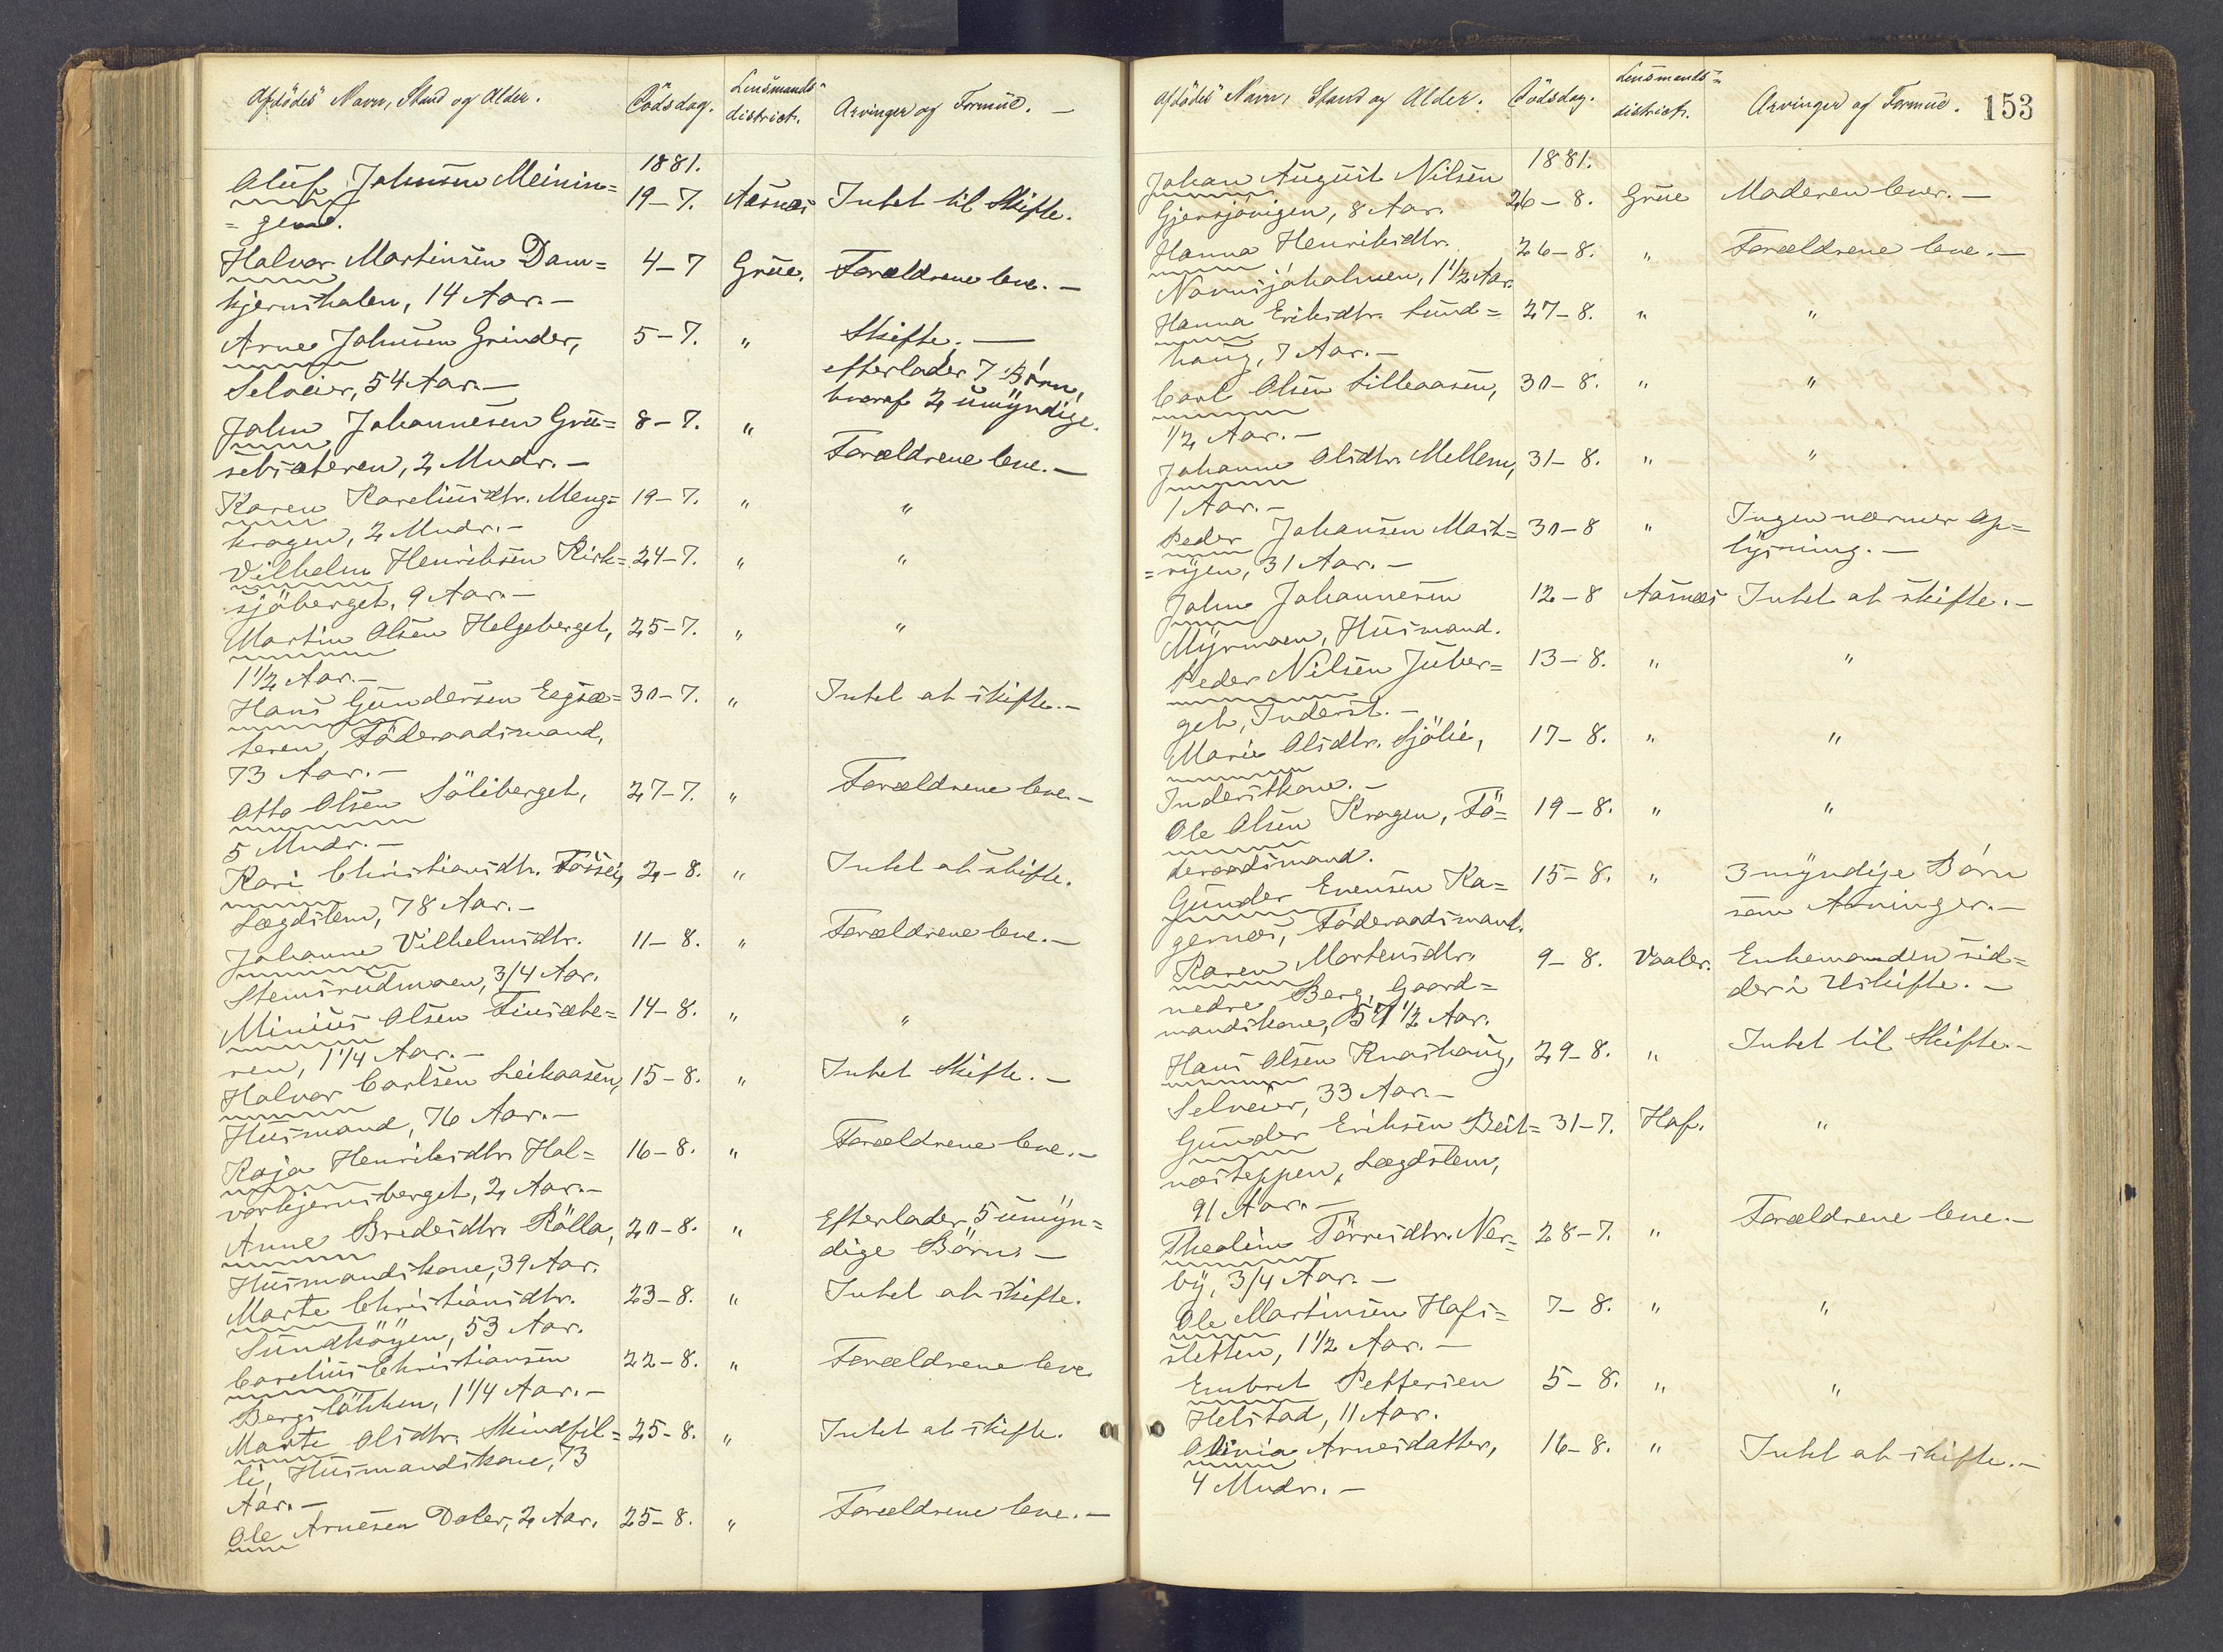 Afdödes Navn, Stand og Alder.
Dödsdag.
Lensmands-
district.
Arvinger og Formue. —
1881.
Oluf Johnsen Meinin=
=gend.
19–7. Aasnæs Intet til Skifte.
Halvor Martinsen Dam=
kjernshalen, 14 Aar. —
4–7 Grue. Forældrene leve. —
Arne Johnsen Grinder,
Selveier, 54 Aar. —
5–7. " Skifte. —
efterlader 7 Børn,
hvoraf 2 umyndige.
John Johannesen Grue=
sebsæteren, 2 Mndr. —
8–7. " Forældrene leve. —
Karen Kareliusdtr. Meng=
kragen, 2 Mndr. —
19–7. " "
Vilhelm Henriksen Kirk=
sjöberget, 9 Aar. —
24–7. " "
Martin Olsen Helgeberget,
1 1/2 Aar. —
25–7. " "
Hans Gundersen Eegsæ=
teren, Föderaadsmand,
73 Aar. —
30–7. " Intet at skifte. —
Otto Olsen Söliberget,
5 Mndr. —
27–7. " Forældrene leve. —
Kari Christiansdtr.
Lægdslem, 78 Aar. —
2–8. " Intet at skifte.
Johanne Vilhelmsdtr.
Stemsrudmoen, 3/4 Aar.
11–8. " Forældrene leve. —
Minius Olsen Finsæte=
ren, 1 1/4 Aar. —
14–8. " "
Halvor Carlsen Leikaasen,
Husmand, 76 Aar. —
15–8. " Intet Skifte. —
Kaja Henriksdtr. Hal=
vorkjernsberget, 2 Aar. —
16–8. " Forældrene leve. —
Anne Bredesdtr. Rölla,
Husmandskone, 39 Aar.
20–8. " Efterlader 5 umyn=
dige Börn. —
Marte Christiansdtr.
Sundhöyen, 53 Aar.
23–8. " Intet at skifte.
Carelius Christiansen
Bergslökken, 1 1/4 Aar. —
22–8. " Forældrene leve
Marte Olsdtr. Skindpil=
li, Husmandskone, 73
Aar. —
25–8. " Intet at skifte.
Ole Arnesen Daler, 2 Aar.
25–8. " Forældrene leve. —
Afdödes Navn, Stand og Alder.
Dödsdag.
Lensmands=
district.
Arvinger og Formue.
153
1881.
Johan August Nilsen
Gjersjövigen, 8 Aar.
26–8. Grue Moderen lever. —
Hanna Henriksdtr.
Nornsjöholmen, 1 1/2 Aar.
26–8. " Forældrene leve. —
Hanna Eriksdtr. Lund=
haug, 7 Aar. —
27–8. " "
Carl Olsen Lilleaasen,
1/2 Aar. —
30–8. " "
Johanne Olsdtr. Mellem,
1 Aar. —
31–8. " "
Peder Johansen Mast=
=ryen, 31 Aar. —
30–8 " Ingen nærmer Op=
lysning. —
John Johannesen
Myrmoen, Husmand.
12–8 Aasnæs Intet at skifte. —
Peder Nilsen Juber=
get, Inderst. —
13–8. " "
Marie Olsdtr. Sjölie,
Inderstkone. —
17–8. " "
Ole Olsen Kragen, Fö=
deraadsmand.
19–8. " "
Gunder Evensen Ka=
gernæs, Föderaadsmand.
15–8. " 3 myndige Børn
som Arvinger. —
Karen Mortensdtr.
nedre Berg, Gaard=
mandskone, 57 1/2 Aar.
9–8. Vaaler. Enkemanden sid=
der i Uskifte. —
Hans Olsen Knashaug,
Selveier, 33 Aar. —
29–8. " Intet til Skifte. —
Gunder Eriksen Beit=
næsteppen, Lægdslem,
91 Aar. —
31–7. Hof. "
Thealine Törresdtr. Ner=
by, 3/4 Aar. —
28–7. " Forældrene leve. —
Ole Martinsen Hofs=
sletten, 1 1/2 Aar. —
7–8. " "
Embret Pettersen
Helstad, 11 Aar.
5–8. " "
Olinia Arnesdatter,
4 Mndr. —
16–8. " Intet at skifte. —